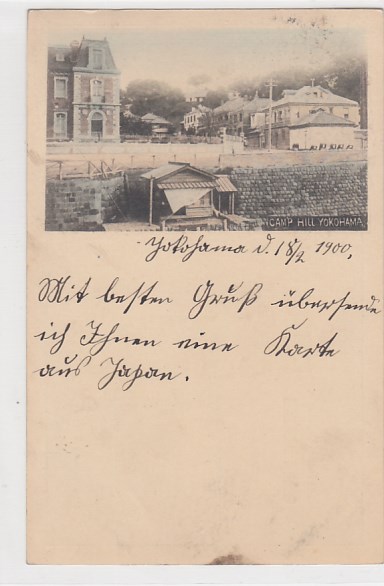 CAMP HILL YOKOHAMA
Yokohama d. 18/2 1900,
Mit besten Gruß übersende
ich Ihnen eine Karte
aus Japan.